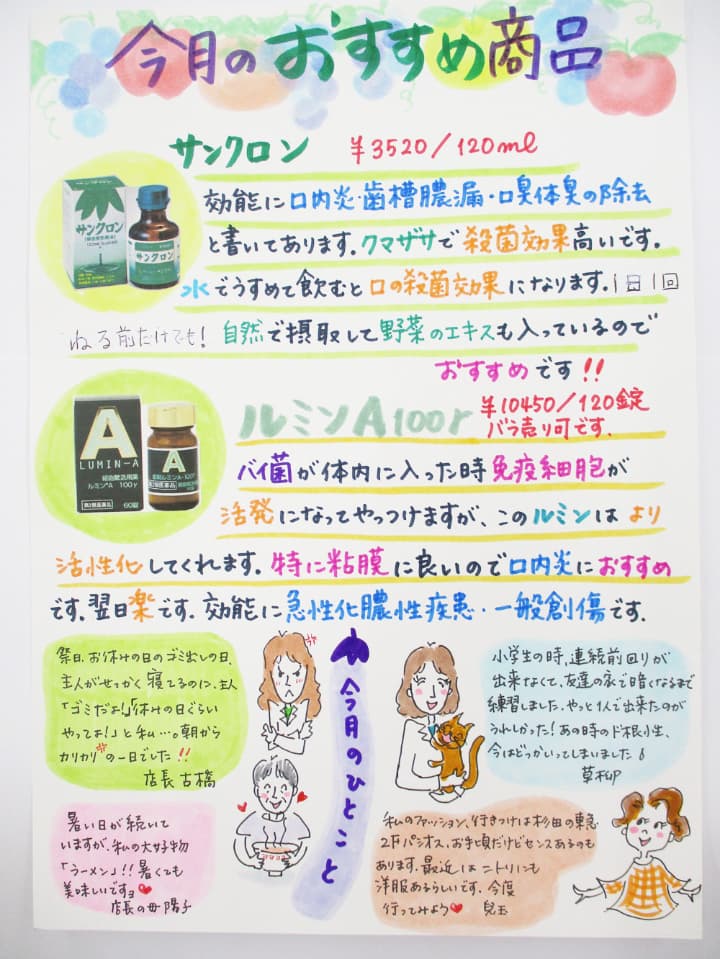 今月のおすすめ商品
サンクロン ￥3520/120ml
サンクロン
サンクロン
効能に口内炎・歯槽膿漏・口臭体臭の除去
と書いてあります。クマザサで殺菌効果高いです。
水でうすめて飲むと口の殺菌効果になります。1日1回
ねる前だけでも！自然で摂取して野菜のエキスも入っているので
おすすめです!!
ルミンA100γ
￥10450/120錠
バラ売り可です。
A
LUMIN-A
細胞賦活用薬
ルミン®A 100γ
第3類医薬品
60錠
A
バイ菌が体内に入った時免疫細胞が
活発になってやっつけますが、このルミンはより
活性化してくれます。特に粘膜に良いので口内炎におすすめ
です。翌日楽です。効能に急性化膿性疾患・一般創傷です。
今月のひとこと
祭日、お休みの日のゴミ出しの日、
主人がせっかく寝てるのに、主人
「ゴミだよ!」「休みの日ぐらい
やってよ!」と私…。朝から
カリカリの一日でした!!
店長 古橋
小学生の時、連続前回りが
出来なくて、友達の家で暗くなるまで
練習しました。やっと1人で出来たのが
うれしかった！あの時のド根性、
今はどっかいってしまいました
草柳
暑い日が続いて
いますが、私の大好物
「ラーメン」!!暑くても
美味しいですョ
店長の母 陽子
私のファッション、行きつけは杉田の東急
2Fパシオス。お手頃だけどセンスあるのも
あります。最近はニトリにも
洋服あるらしいです。今度
行ってみよう 兒玉